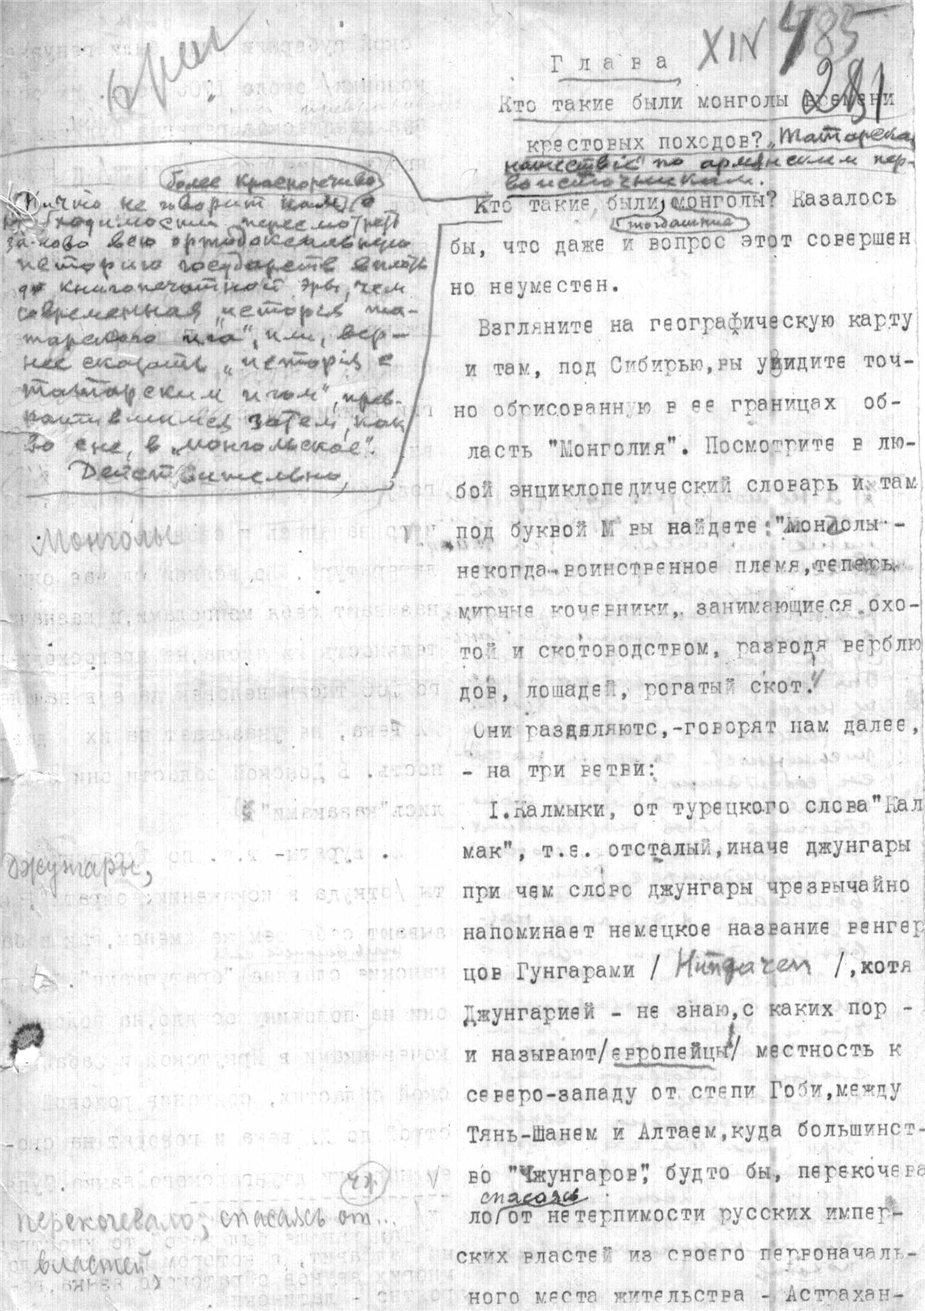 Глава XIV 485
281
Кто такие были монголы времени
крестовых походов? "Татарска
нашествие" по армянским пер-
воисточникам.
более красноречиво
Ничто не говорит нам о
необходимости пересмотреть
заново всю ортодоксальную
историю государств вплоть
до книгопечатной эры, чем
современная "история та-
тарского ига", или, вер-
нее сказать, "история с
татарским игом", прев-
ратившимся затем, как
во сне, в "монгольское".
Действительно,
Кто такие были монголы? Казалось
тогдашние
бы, что даже и вопрос этот совершен
но неуместен.
Взгляните на географическую карту
и там, под Сибирью,вы увидите точ-
но обрисованную в ее границах об-
ласть "Монголия". Посмотрите в лю-
бой энциклопедический словарь и там
под буквой М вы найдете:"Монголы -
некогда воинственное племя,теперь
мирные кочевники, занимающиеся охо-
той и скотоводством, разводя верблю
дов, лошадей, рогатый скот."
Они разделяютс,-говорят нам далее,
- на три ветви:
I.Калмыки, от турецкого слова"Кал
мак", т.е. отсталый,иначе джунгары
при чем слово джунгары чрезвычайно
напоминает немецкое название венгер
цов Гунгарами / Hungaren /,хотя
Джунгарией - не знаю,с каких пор -
и называют/европейцы/ местность к
северо-западу от степи Гоби,между
Тянь-Шанем и Алтаем,куда большинст-
во "Чжунгаров", будто бы, перекочева
спасаясь
ло/от нетерпимости русских импер-
ских властей из своего первоначаль-
ного места жительства - Астрахан-
Монголы
Джунгары,
перекочевало, спасаясь от...
властей